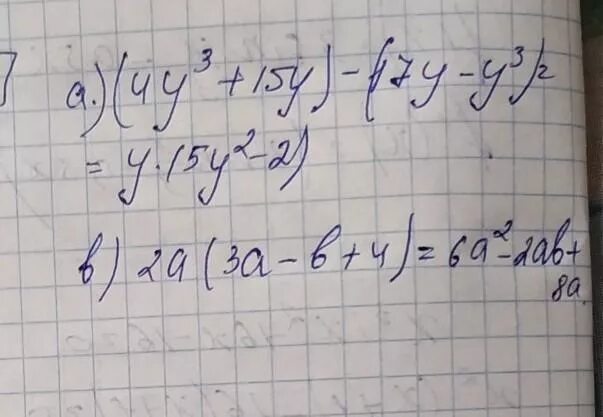 а.) (4y³ + 15y) - (17y - y³) =
= y · (5y² - 2)
в) 2a (3a - в + 4) = 6a² - 2ab +
8a